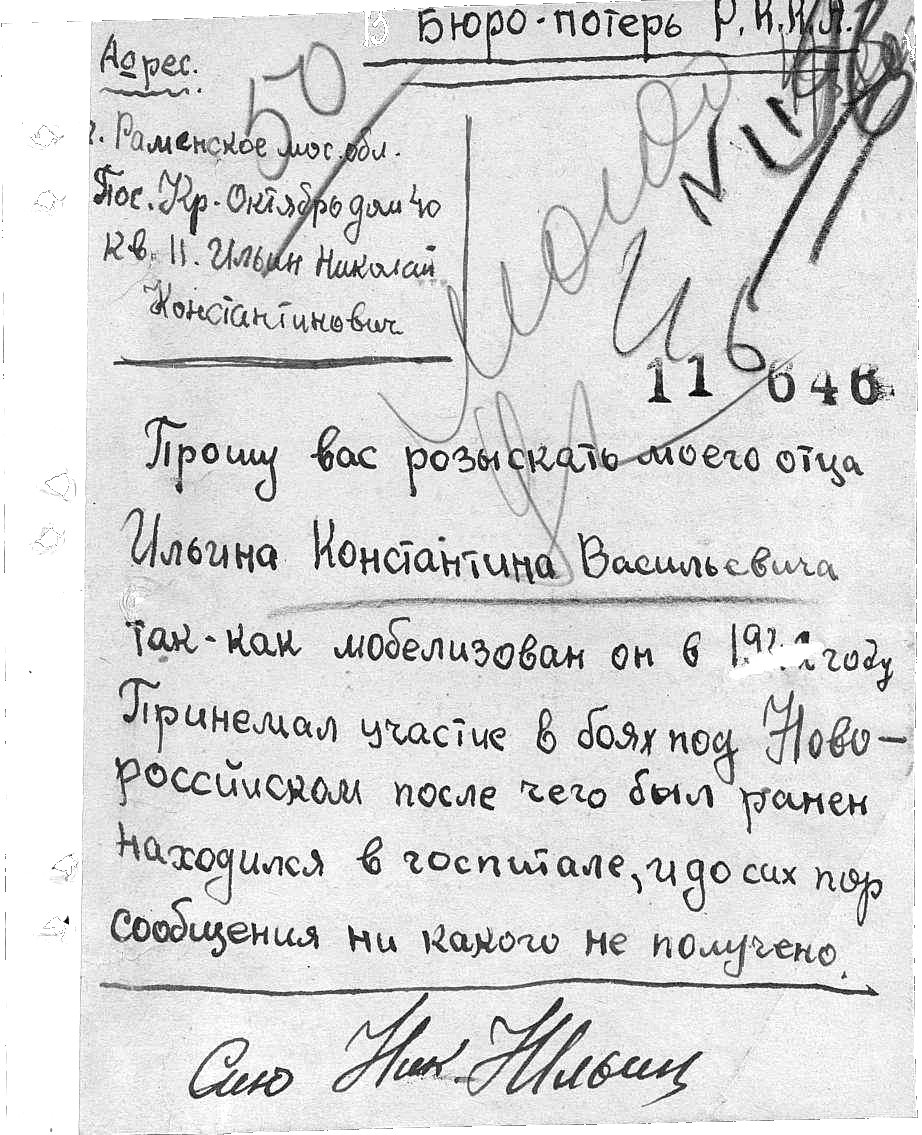 Бюро-потерь Р.К.К.А.
Адрес.
50
г. Раменское мос. обл.
Пос. Кр. Октябрь дом 40
кв. 11. Ильин Николай
Константинович
11 646
Прошу вас розыскать моего отца
Ильина Константина Васильевича
так-как мобелизован он в году
Принемал участие в боях под Ново-
россйиском после чего был ранен
находился в госпитале, и до сих пор
сообщения ни какого не получено.
Ник. Ильин